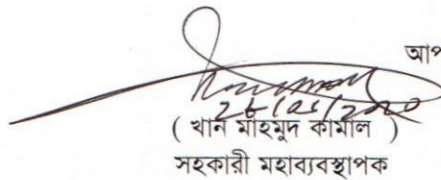 আপ
( খান মাহমুদ কামাল )
সহকারী মহাব্যবস্থাপক